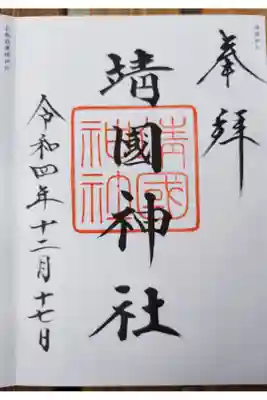 奉拝
靖國神社
靖國神社
令和四年十二月十七日